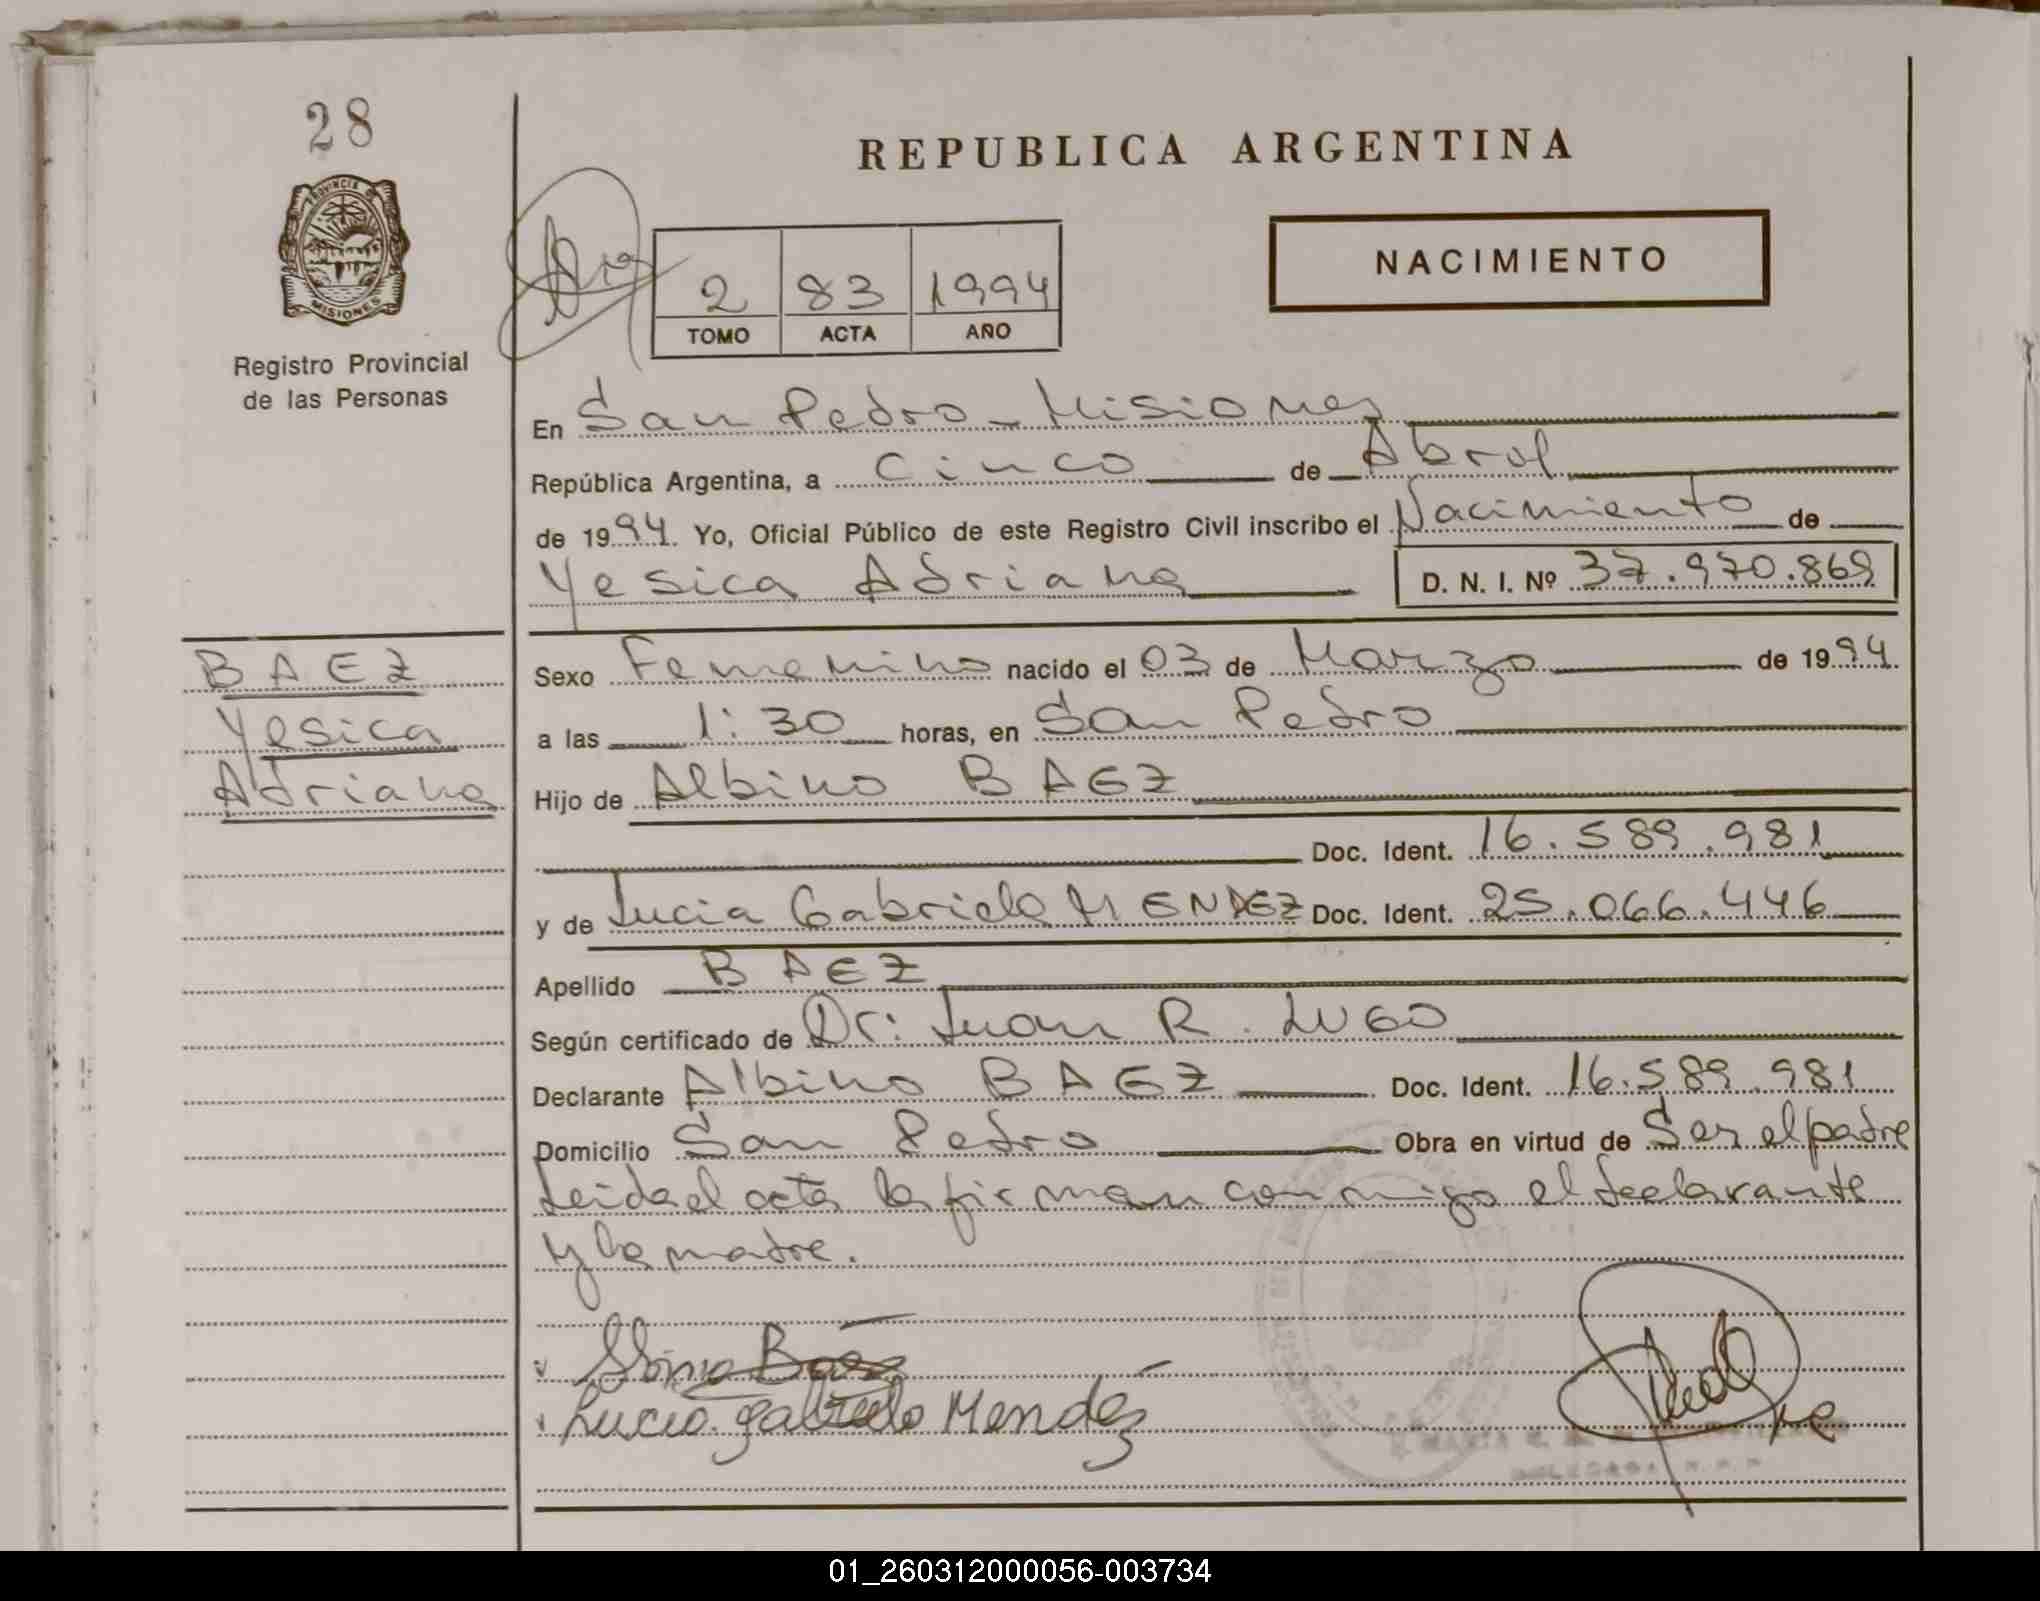 28
PROVINCIA DE
MISIONES
Registro Provincial
de las Personas
REPUBLICA ARGENTINA
2 83 1994
TOMO ACTA AÑO
NACIMIENTO
En San Pedro - Misiones
República Argentina, a cinco de Abril
de 1994. Yo, Oficial Público de este Registro Civil inscribo el Nacimiento de
Yesica Adriana D. N. I. Nº 37.970.869
BAEZ
Yesica
Adriana
Sexo Femenino nacido el 03 de Marzo de 1994.
a las 1:30 horas, en San Pedro
Hijo de Albino BAEZ
Doc. Ident. 16.589.981
y de Lucia Gabriela MENDEZ Doc. Ident. 25.066.446
Apellido BAEZ
Según certificado de Dr: Juan R. LUGO
Declarante Albino BAEZ Doc. Ident. 16.589.981
Domicilio San Pedro Obra en virtud de Ser el padre
Leida el acta la firman conmigo el declarante
y la madre.
Baez
Lucia Gabriela Mendez
01_260312000056-003734